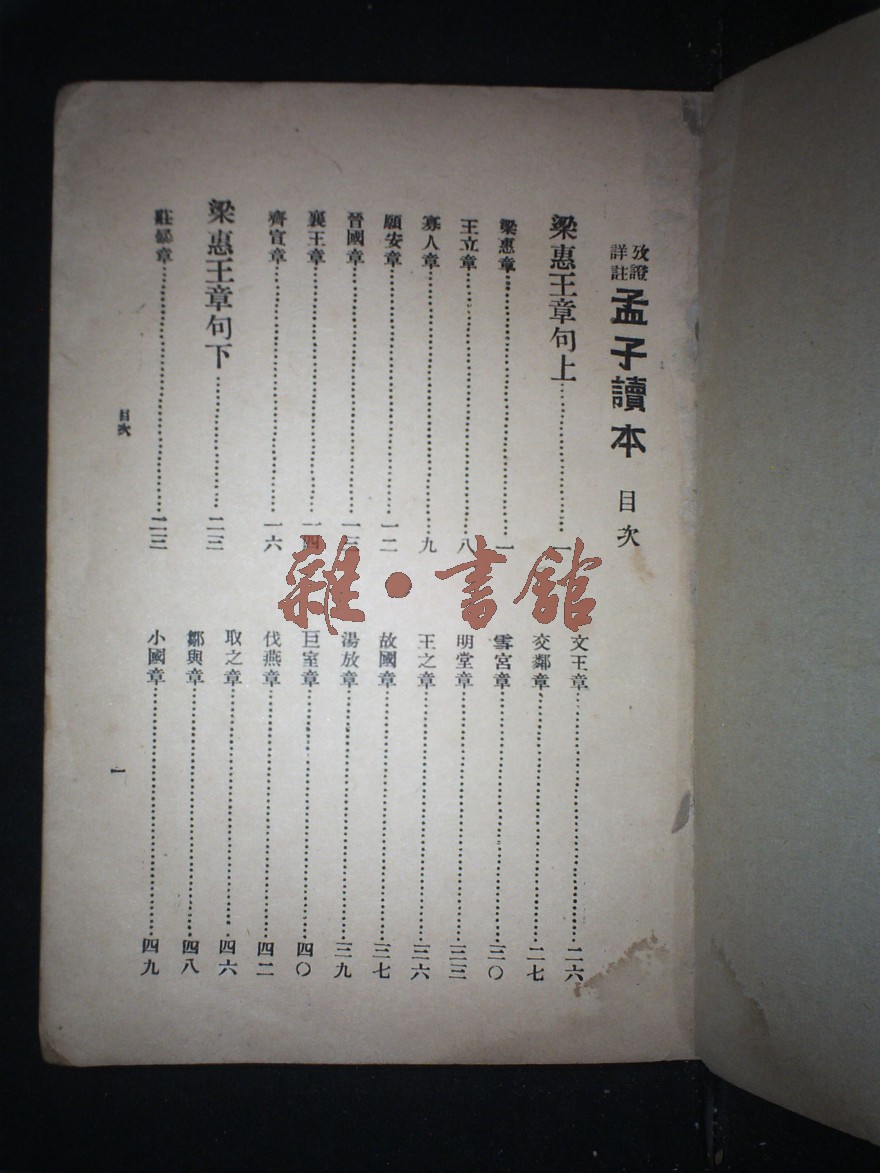 攷證詳註孟子讀本 目次
梁惠王章句上…一
梁惠章…一
王立章…八
寡人章…九
願安章…一二
晉國章…一三
襄王章…一四
齊宣章…一六
梁惠王章句下…二三
莊暴章…二三
文王章…二六
交鄰章…二七
雪宮章…三〇
明堂章…三三
王之章…三六
故國章…三七
湯放章…三九
巨室章…四〇
伐燕章…四二
取之章…四六
鄒與章…四八
小國章…四九
目次
一
雜·書館